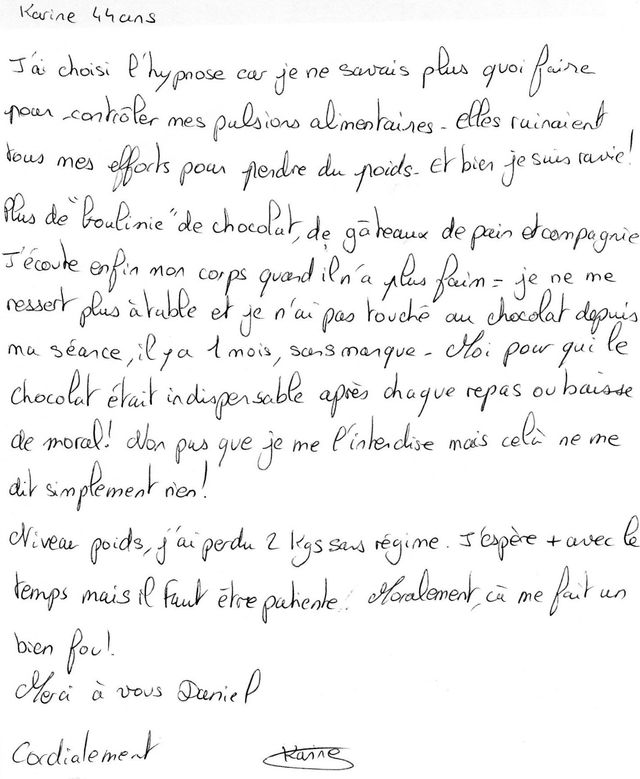 Karine 44ans
J'ai choisi l'hypnose car je ne savais plus quoi faire
pour contrôler mes pulsions alimentaires - elles ruinaient
tous mes efforts pour perdre du poids. Et bien je suis ravie!
Plus de "boulimie" de chocolat, de gâteaux de pain et compagnie
J'écoute enfin mon corps quand il n'a plus faim = je ne me
ressert plus à table et je n'ai pas touché au chocolat depuis
ma séance, il y a 1 mois, sans manque - Moi pour qui le
chocolat était indispensable après chaque repas ou baisse
de moral! Non pas que je me l'interdise mais celà ne me
dit simplement rien!
Niveau poids, j'ai perdu 2 kgs sans régime. J'espère + avec le
temps mais il faut être patiente. Moralement, cà me fait un
bien fou!
Merci à vous Daniel
Cordialement Karine